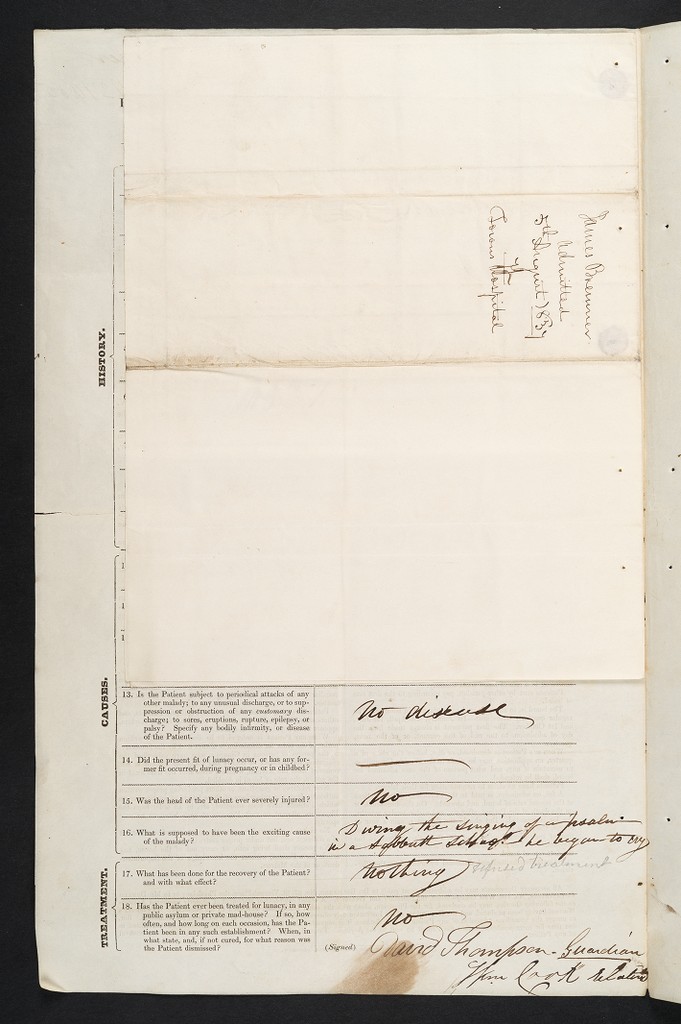 James Bremner
Admitted
5th August 1839
Towns Hospital
HISTORY.
CAUSES.
TREATMENT.
13. Is the Patient subject to periodical attacks of any
other malady; to any unusual discharge, or to sup-
pression or obstruction of any customary dis-
charge; to sores, eruptions, rupture, epilepsy, or
palsy? Specify any bodily infirmity, or disease
of the Patient.
No disease
14. Did the present fit of lunacy occur, or has any for-
mer fit occurred, during pregnancy or in childbed?
15. Was the head of the Patient ever severely injured?
No
16. What is supposed to have been the exciting cause
of the malady?
During the singing of a psalm
in a Sabbath School he began to cry
17. What has been done for the recovery of the Patient?
and with what effect?
Nothing
treatment
18. Has the Patient ever been treated for lunacy, in any
public asylum or private mad-house? If so, how
often, and how long on each occasion, has the Pa-
tient been in any such establishment? When, in
what state, and, if not cured, for what reason was
the Patient dismissed?
No
(Signed) David Thompson - Guardian
Wm Cook relation